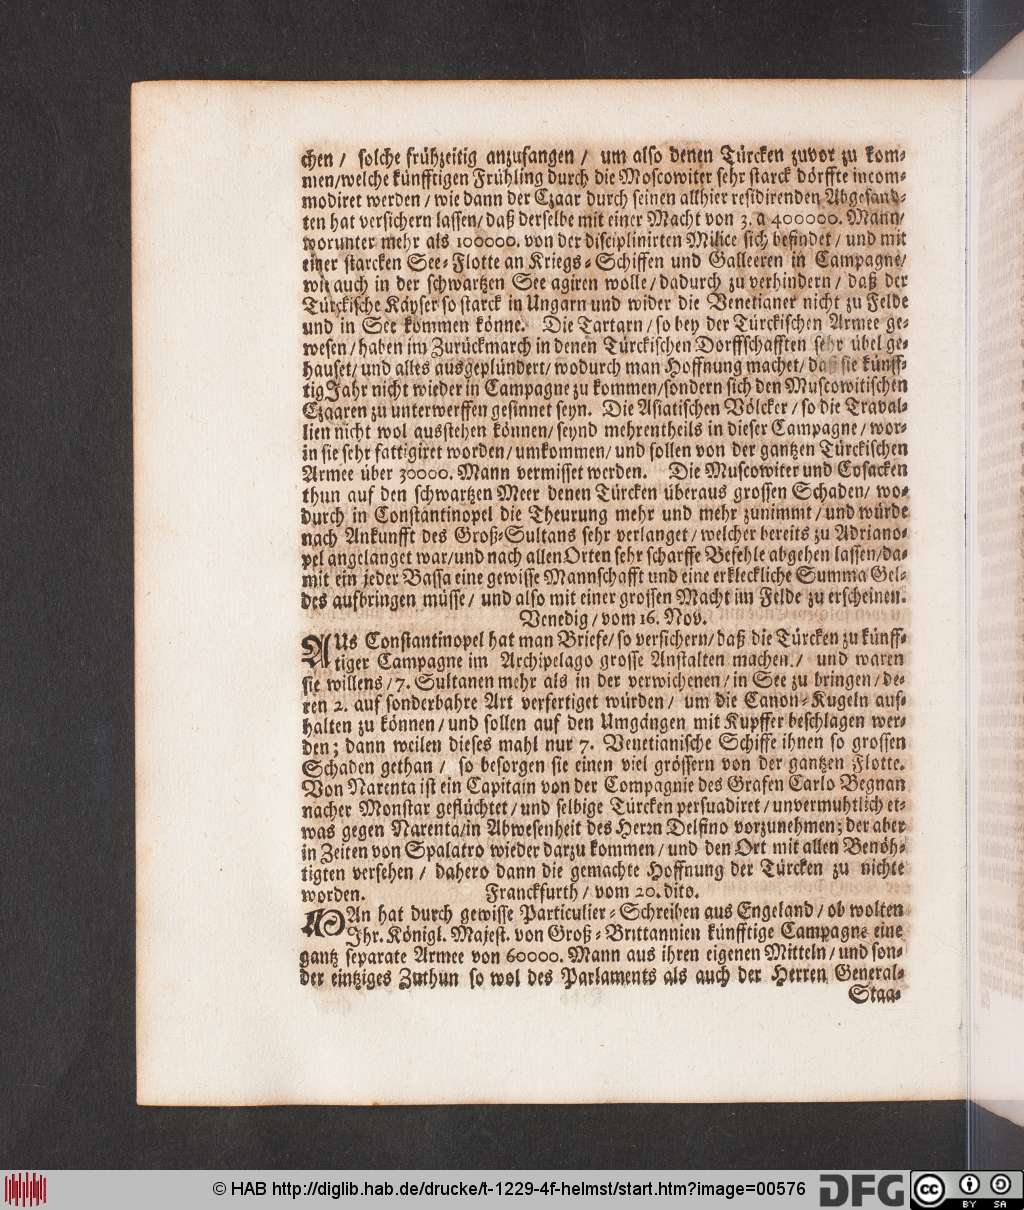 chen / solche frühzeitig anzufangen / um also denen Türcken zuvor zu kom-
men/welche künfftigen Frühling durch die Moscowiter sehr starck dörffte incom-
modiret werden / wie dann der Czaar durch seinen allhier residirenden Abgesand-
ten hat versichern lassen/ daß derselbe mit einer Macht von 3. a 400000. Mann/
worunter mehr als 100000. von der disciplinirten Milice sich befindet / und mit
einer starcken See-Flotte an Kriegs-Schiffen und Galleeren in Campagne/
wie auch in der schwartzen See agiren wolle / dadurch zu verhindern / daß der
Türckische Käyser so starck in Ungarn und wider die Venetianer nicht zu Felde
und in See kommen könne. Die Tartarn / so bey der Türckischen Armee ge-
wesen / haben im Zurückmarch in denen Türckischen Dorffschafften sehr übel ge-
hauset/ und alles ausgeplündert/ wodurch man Hoffnung machet/ daß sie künff-
tig Jahr nicht wieder in Campagne zu kommen/sondern sich den Muscowitischen
Czaaren zu unterwerffen gesinnet seyn. Die Asiatischen Völcker / so die Traval-
lien nicht wol ausstehen können/ seynd mehrentheils in dieser Campagne / wor-
in sie sehr fattigiret worden/ umkommen/ und sollen von der gantzen Türckischen
Armee über 30000. Mann vermisset werden. Die Muscowiter und Cosacken
thun auf den schwartzen Meer denen Türcken überaus grossen Schaden/ wo-
durch in Constantinopel die Theurung mehr und mehr zunimmt / und würde
nach Ankunfft des Groß-Sultans sehr verlanget / welcher bereits zu Adriano-
pel angelanget war/und nach allen Orten sehr scharffe Befehle abgehen lassen/da-
mit ein jeder Bassa eine gewisse Mannschafft und eine erkleckliche Summa Gel-
des aufbringen müsse / und also mit einer grossen Macht im Felde zu erscheinen.
Venedig / vom 16. Nov.
AUs Constantinopel hat man Briefe/ so versichern/ daß die Türcken zu künff-
tiger Campagne im Archipelago grosse Anstalten machen / und waren
sie willens / 7. Sultanen mehr als in der verwichenen / in See zu bringen / de-
ren 2. auf sonderbahre Art verfertiget würden / um die Canon-Kugeln auf-
halten zu können / und sollen auf den Umgängen mit Kupffer beschlagen wer-
den; dann weilen dieses mahl nur 7. Venetianische Schiffe ihnen so grossen
Schaden gethan / so besorgen sie einen viel grössern von der gantzen Flotte.
Von Narenta ist ein Capitain von der Compagnie des Grafen Carlo Begnan
nacher Monstar geflüchtet / und selbige Türcken persuadiret / unvermuhtlich et-
was gegen Narenta/in Abwesenheit des Herrn Delfino vorzunehmen; der aber
in Zeiten von Spalatro wieder darzu kommen / und den Ort mit allen Benöh-
tigten versehen / dahero dann die gemachte Hoffnung der Türcken zu nichte
worden. Franckfurth / vom 20. dito.
MAn hat durch gewisse Particulier-Schreiben aus Engeland / ob wolten
Ihr. Königl. Majest. von Groß-Brittannien künfftige Campagne eine
gantz separate Armee von 60000. Mann aus ihren eigenen Mitteln / und son-
der eintziges Zuthun so wol des Parlaments als auch der Herren General-
Staa-
© HAB http://diglib.hab.de/drucke/t-1229-4f-helmst/start.htm?image=00576
DFG
cc
BY SA